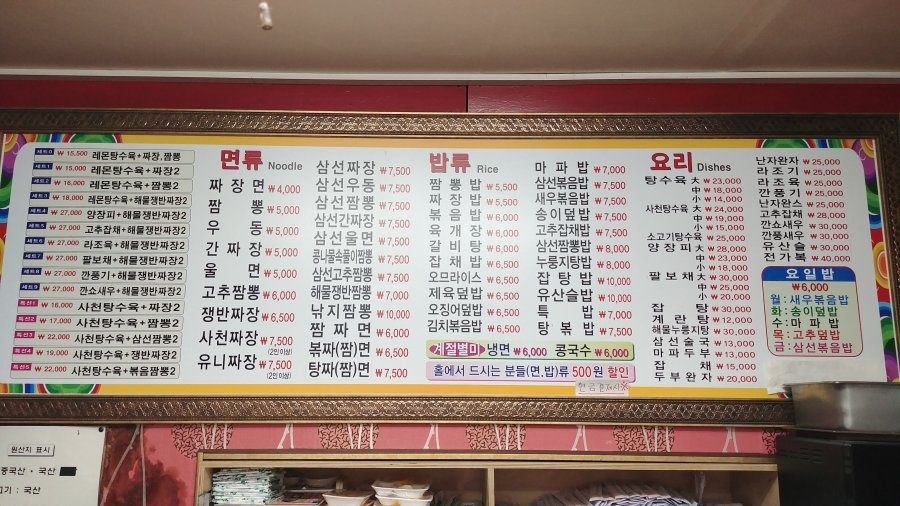 세트0 ₩ 15,500 레몬탕수육+짜장,짬뽕
세트1 ₩ 15,000 레몬탕수육+짜장2
세트2 ₩ 16,000 레몬탕수육+짬뽕2
세트3 ₩ 18,000 레몬탕수육+해물쟁반짜장2
세트4 ₩ 27,000 양장피+해물쟁반짜장2
세트5 ₩ 27,000 고추잡채+해물쟁반짜장2
세트6 ₩ 27,000 라조육+해물쟁반짜장2
세트7 ₩ 27,000 팔보채+해물쟁반짜장2
세트8 ₩ 27,000 깐풍기+해물쟁반짜장2
세트9 ₩ 27,000 깐쇼새우+해물쟁반짜장2
특선1 ₩ 16,000 사천탕수육+짜장2
특선2 ₩ 17,000 사천탕수육+짬뽕2
특선3 ₩ 22,000 사천탕수육+삼선짬뽕2
특선4 ₩ 19,000 사천탕수육+쟁반짜장2
특선5 ₩ 22,000 사천탕수육+볶음짬뽕2
면류 Noodle
짜장면 ₩4,000
짬뽕 ₩5,000
우동 ₩5,000
간짜장 ₩5,000
울면 ₩5,000
고추짬뽕 ₩6,000
쟁반짜장 ₩6,500
사천짜장 ₩7,500
(2인이상)
유니짜장 ₩7,500
(2인이상)
삼선짜장 ₩7,500
삼선우동 ₩7,500
삼선짬뽕 ₩7,500
삼선간짜장 ₩7,500
삼선울면 ₩7,500
콩나물속풀이짬뽕 ₩7,500
삼선고추짬뽕 ₩7,500
해물쟁반짬뽕 ₩7,000
낙지짬뽕 ₩10,000
짬짜면 ₩6,000
볶짜(짬)면 ₩6,500
탕짜(짬)면 ₩6,500
밥류 Rice
짬뽕밥 ₩5,500
짜장밥 ₩5,500
볶음밥 ₩6,000
육개장 ₩6,000
갈비탕 ₩6,000
잡채밥 ₩6,500
오므라이스 ₩6,500
제육덮밥 ₩6,500
오징어덮밥 ₩6,500
김치볶음밥 ₩6,500
마파밥 ₩7,000
삼선볶음밥 ₩7,500
새우볶음밥 ₩7,500
송이덮밥 ₩7,500
고추잡채밥 ₩7,500
삼선짬뽕밥 ₩8,000
누룽지탕밥 ₩8,000
잡탕밥 ₩10,000
유산슬밥 ₩10,000
특밥 ₩7,000
탕볶밥 ₩7,500
계절별미 냉면 ₩6,000 콩국수 ₩6,000
홀에서 드시는 분들(면,밥)류 500원 할인
요리 Dishes
탕수육 大 ₩23,000
中 ₩18,000
小 ₩14,000
사천탕수육 大 ₩24,000
中 ₩19,000
小 ₩15,000
소고기탕수육 ₩25,000
양장피 大 ₩28,000
中 ₩23,000
小 ₩18,000
팔보채 大 ₩30,000
中 ₩25,000
小 ₩20,000
잡탕 ₩30,000
계란탕 ₩12,000
해물누룽지탕 ₩30,000
삼선술국 ₩13,000
마파두부 ₩13,000
잡채 ₩15,000
두부완자 ₩20,000
난자완자 ₩25,000
라조기 ₩25,000
라조육 ₩25,000
깐풍기 ₩25,000
난자완스 ₩25,000
고추잡채 ₩28,000
깐쇼새우 ₩30,000
깐풍새우 ₩30,000
유산슬 ₩30,000
전가복 ₩40,000
요일밥
₩6,000
월:새우볶음밥
화:송이덮밥
수:마파밥
목:고추덮밥
금:삼선볶음밥
원산지 표시
중국산 · 국산
고기 : 국산